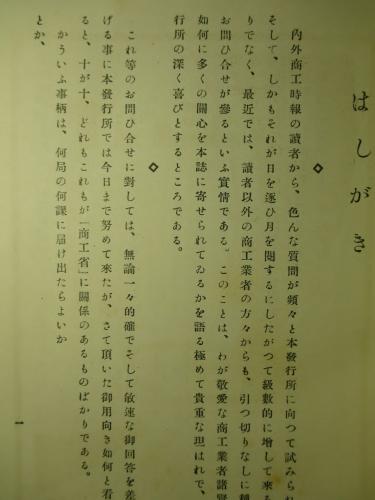 はしがき
◇
內外商工時報の讀者から、色んな質問が頻々と本發行所に向つて試みられ
そして、しかもそれが日を逐ひ月を閱するにしたがつて級數的に增して來る
りでなく、最近では、讀者以外の商工業者の方々からも、引つ切りなしに種
お問ひ合せが參るといふ實情である。このことは、わが敬愛な商工業者諸賢
如何に多くの關心を本誌に寄せられてゐるかを語る極めて貴重な現はれで、
行所の深く喜びとするところである。
◇
これ等のお問ひ合せに對しては、無論一々的確でそして敏速な御回答を差
げる事に本發行所では今日まで努めて來たが、さて頂いた御用向き如何と看
ると、十が十、どれもこれもが「商工省」に關係のあるものばかりである。
かういふ事柄は、何局の何課に届け出たらよいか
とか、
一